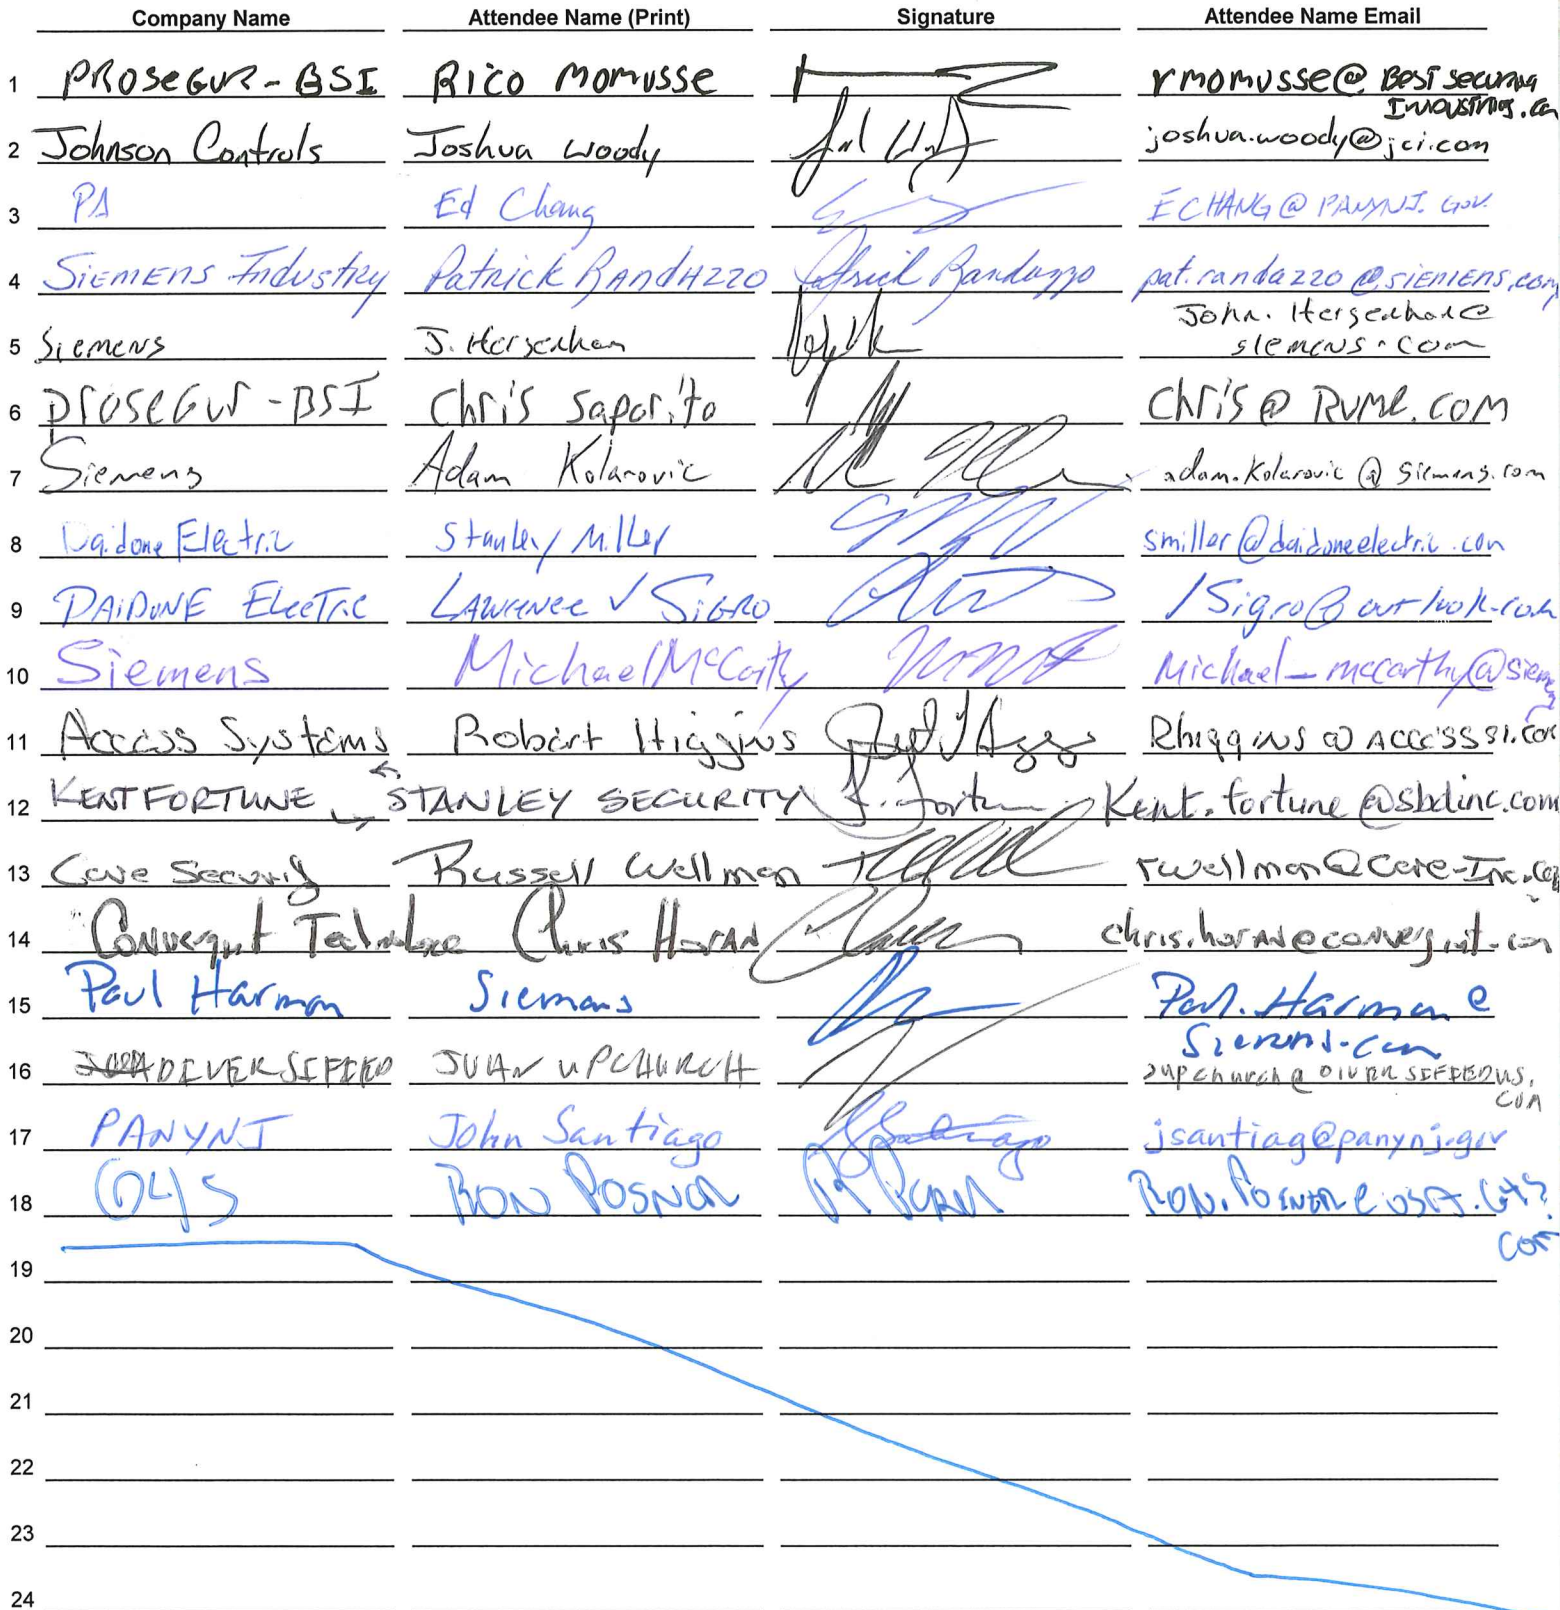 Company Name Attendee Name (Print) Signature Attendee Name Email
1 PROSEGUR-BSI Rico Momusse rmomusse@ Best security
Industries.com
2 Johnson Controls Joshua Woody joshua.woody@jci.com
3 PA Ed Chang ECHANG@PANYNJ.GOV
4 SIEMENS Industry Patrick RANDAZZO Patrick Randazzo pat.randazzo@SIEMENS.com
John.Hergenhan@
5 Siemens J. Hergenhan siemens.com
6 Prosegur-BSI Chris Saporito Chris@RVML.COM
7 Siemens Adam Kolarovic adam.Kolarovic@Siemens.com
8 Daidone Electric Stanley Miller smiller@daidoneelectric.com
9 DAIDONE Electric LAWRENCE V SIGRO lSigro@outlook.com
10 Siemens Michael McCarthy Michael_mccarthy@siemens
11 Access Systems Robert Higgins Rhiggins@ACCESSSI.com
12 KENT FORTUNE STANLEY SECURITY K. Fortune Kent.fortune@sbdinc.com
13 Care Security Russell Wellman rwellman@Care-Inc.com
14 Convergint Chris HORAN chris.horan@convergint.com
15 Paul Harmon Siemans Paul.Harmon@
Siemens.com
16 DIVERSIFIED JUAN UPCHURCH jupchurch@DIVERSIFIEDUS.
COM
17 PANYNJ John Santiago J Santiago jsantiag@panynj.gov
18 G4S RON POSNER RON.POSNER@USA.G4S.
COM
19
20
21
22
23
24